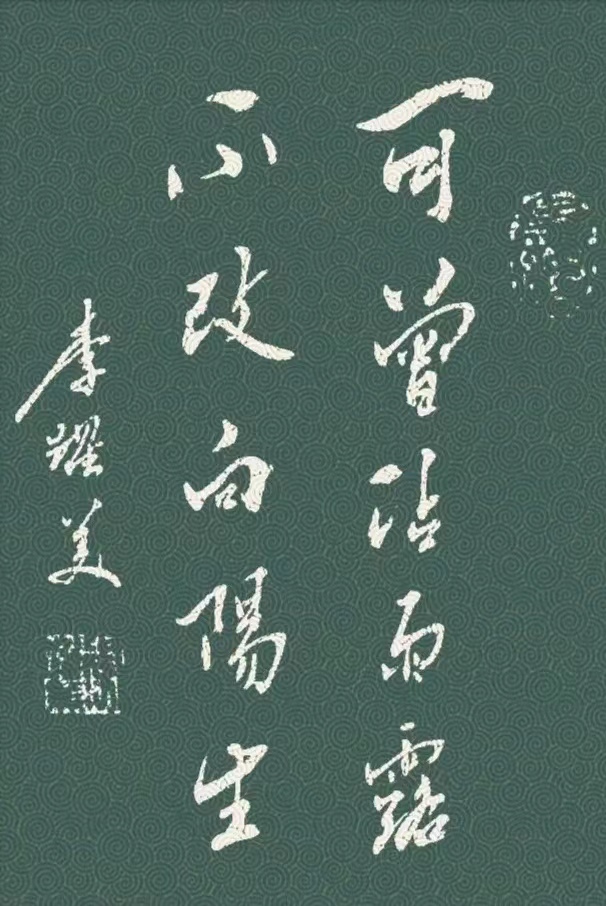 可曾沾雨露
不改向陽生
李躍美